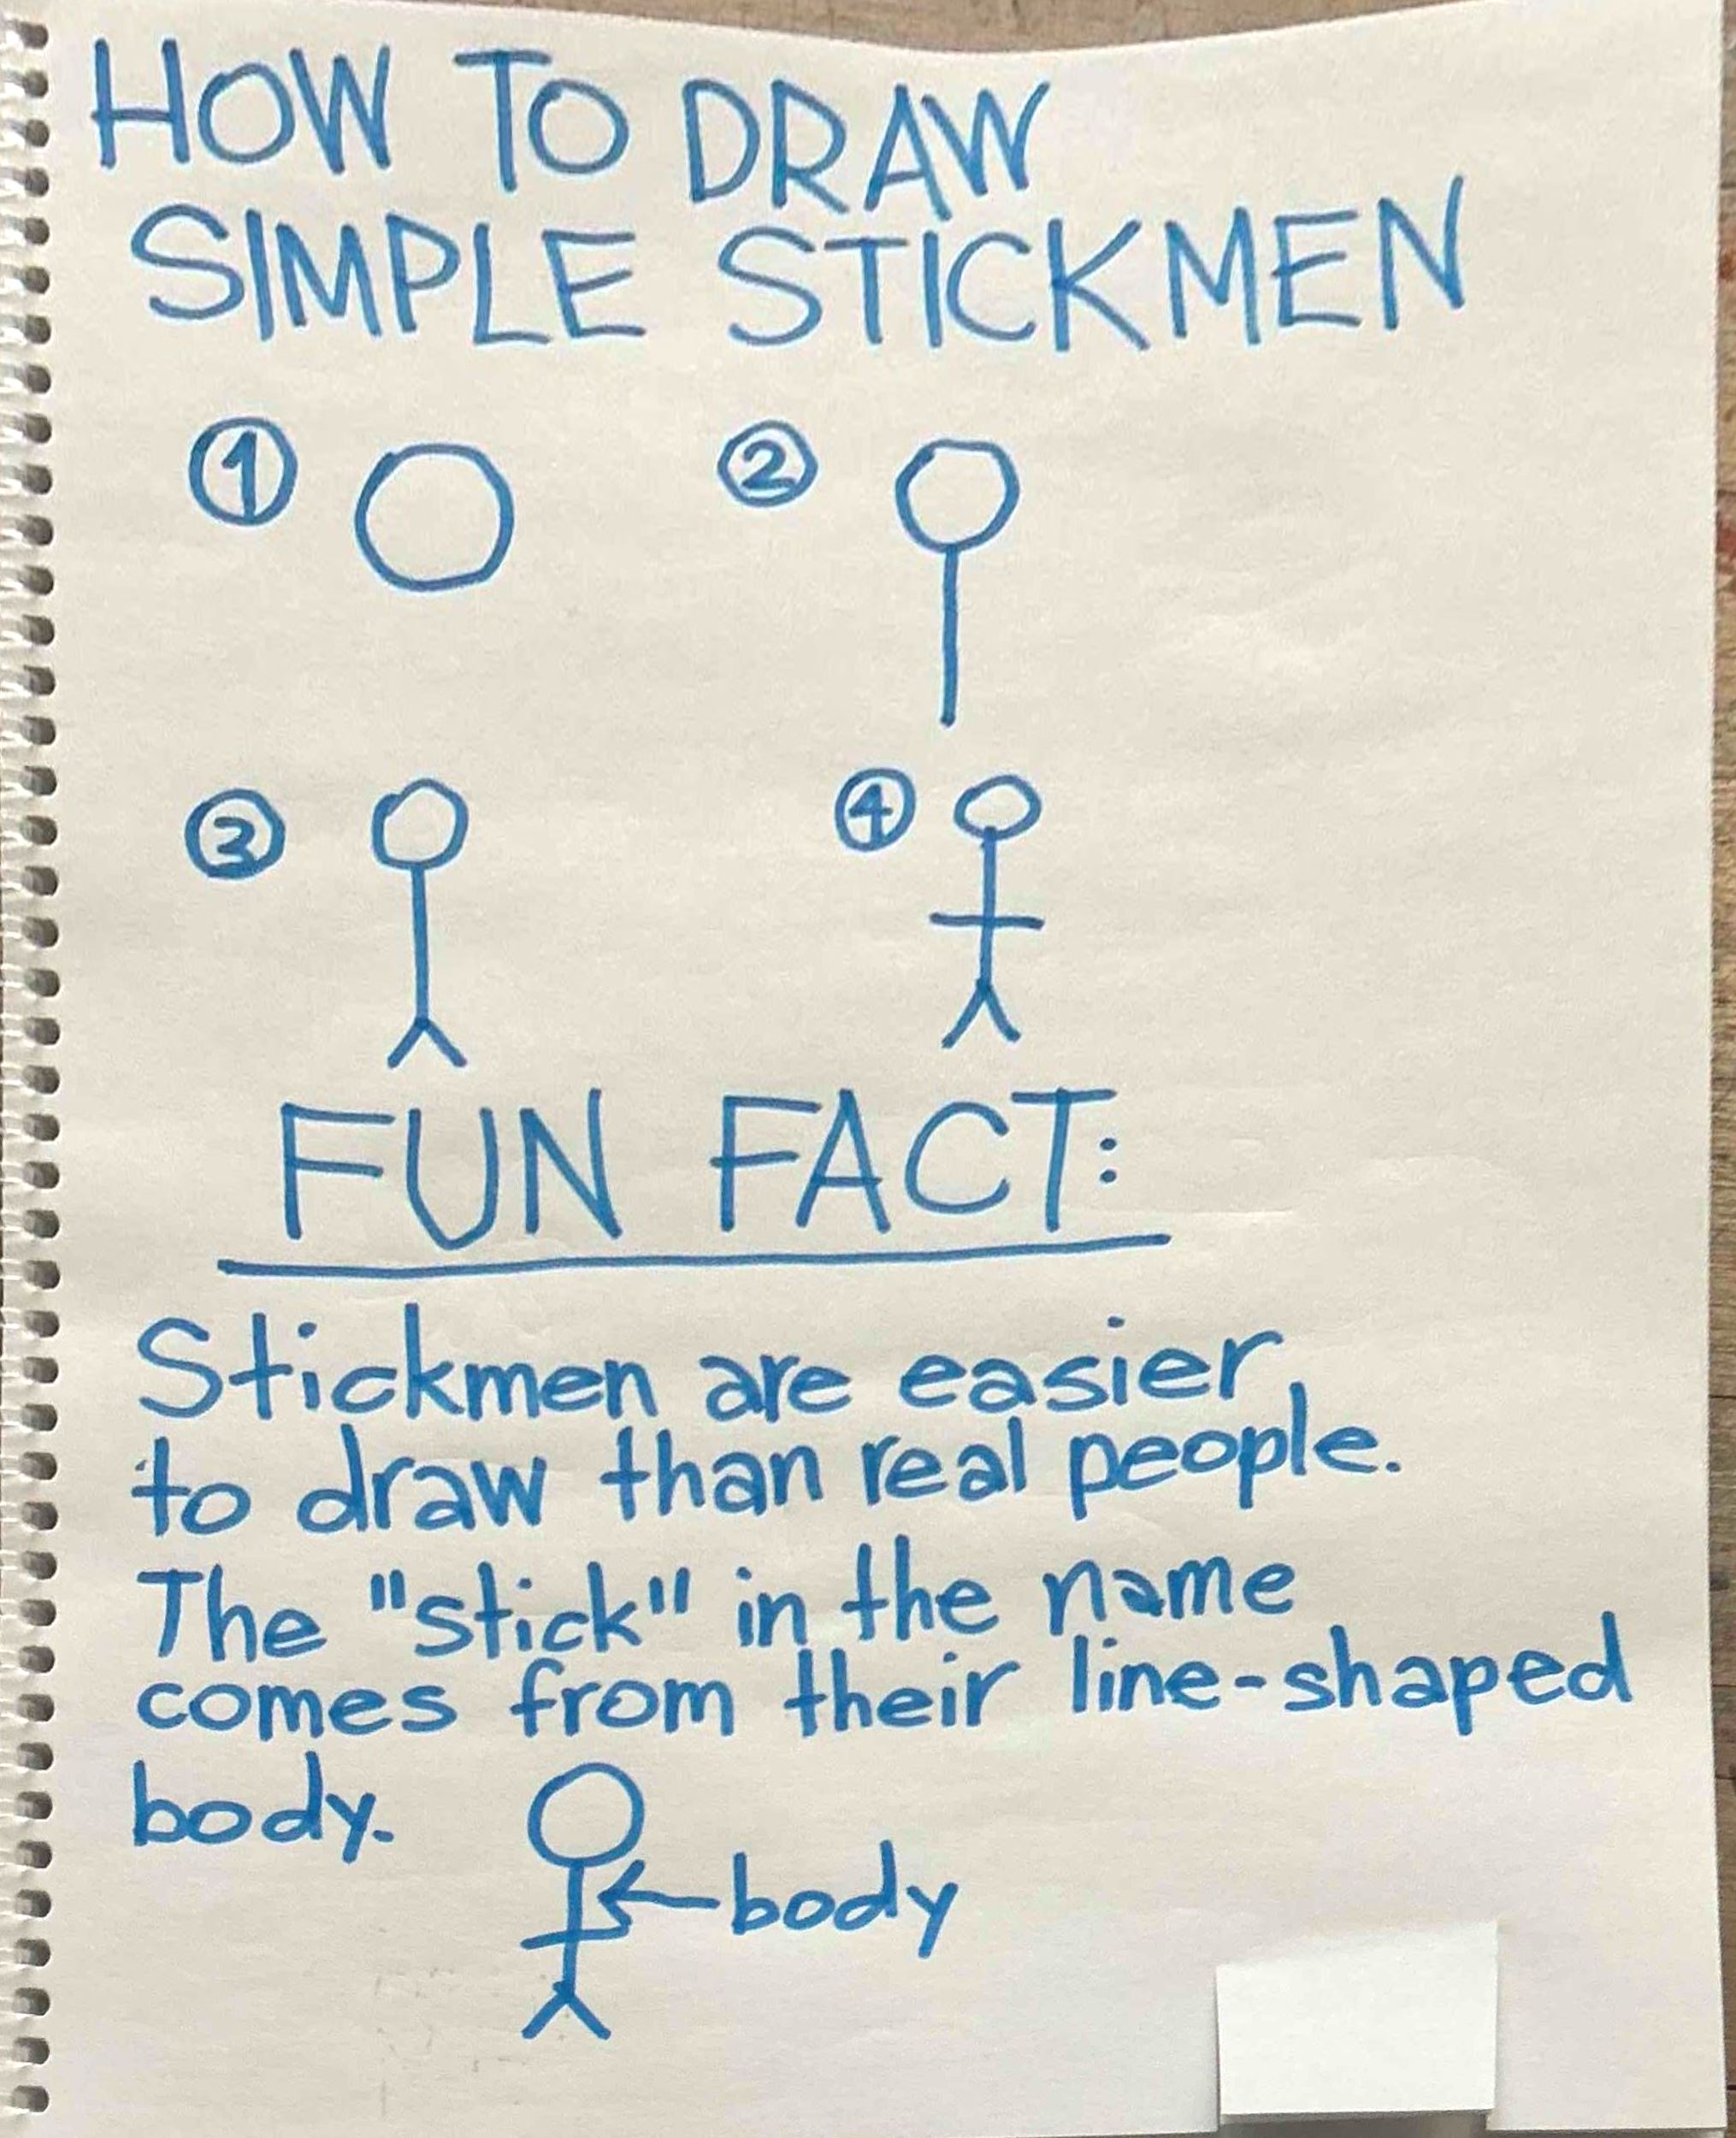 HOW TO DRAW
SIMPLE STICKMEN
1
2
3
4
FUN FACT:
Stickmen are easier
to draw than real people.
The "stick" in the name
comes from their line-shaped
body.
body